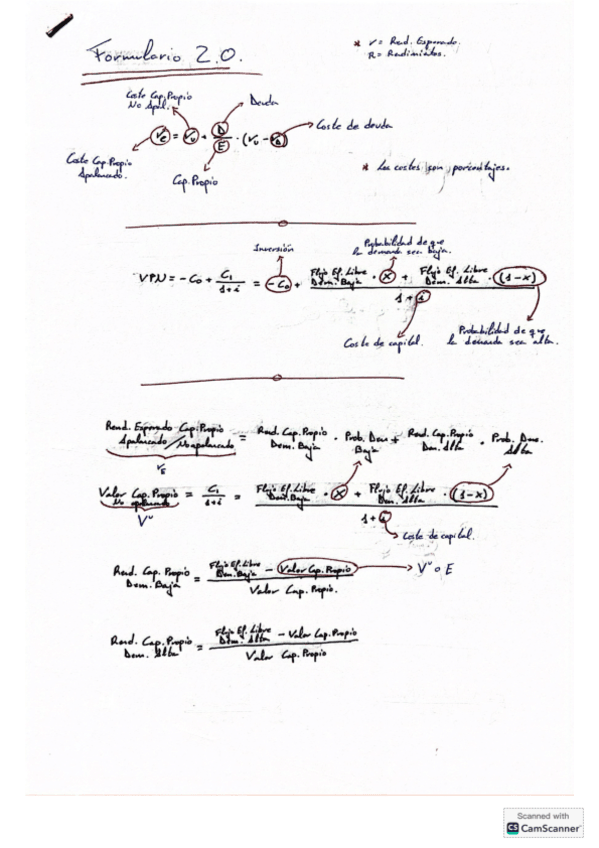 Formulario 2.0.
* r = Rend. Esperado.
R = Rendimientos.
Coste Cap. Propio
No Apal.
Deuda
Coste de deuda
re = ru + D/E · (ru - rD)
Coste Cap. Propio
Apalancado.
Cap. Propio
* Los costes son porcentajes.
Inversión
Probabilidad de que
la demanda sea baja.
VPN = -C0 + C1/1+i = -C0 + Flujo Ef. Libre Dem. Baja · x + Flujo Ef. Libre Dem. Alta · (1-x)
1+i
Coste de capital.
Probabilidad de que
la demanda sea alta.
Rend. Esperado Cap. Propio Apalancado/No apalancado = Rend. Cap. Propio Dem. Baja · Prob. Dem Baja + Rend. Cap. Propio Dem. Alta · Prob. Dem. Alta
rE
Valor Cap. Propio No apalancado = C1/1+i = Flujo Ef. Libre Dem. Baja · x + Flujo Ef. Libre Dem. Alta · (1-x)
1+i
Vu
Coste de capital.
Rend. Cap. Propio Dem. Baja = Flujo Ef. Libre Dem. Baja - Valor Cap. Propio
Valor Cap. Propio.
Vu o E
Rend. Cap. Propio Dem. Alta = Flujo Ef. Libre Dem. Alta - Valor Cap. Propio
Valor Cap. Propio
Scanned with
CS CamScanner